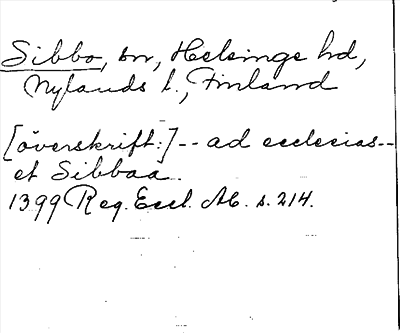 Sibbo, sn, Helsinge hd,
Nylands l., Finland
[överskrift:] -- ad ecclesias --
et Sibbaa.
1399 Reg. Eccl. Ab. s. 214.